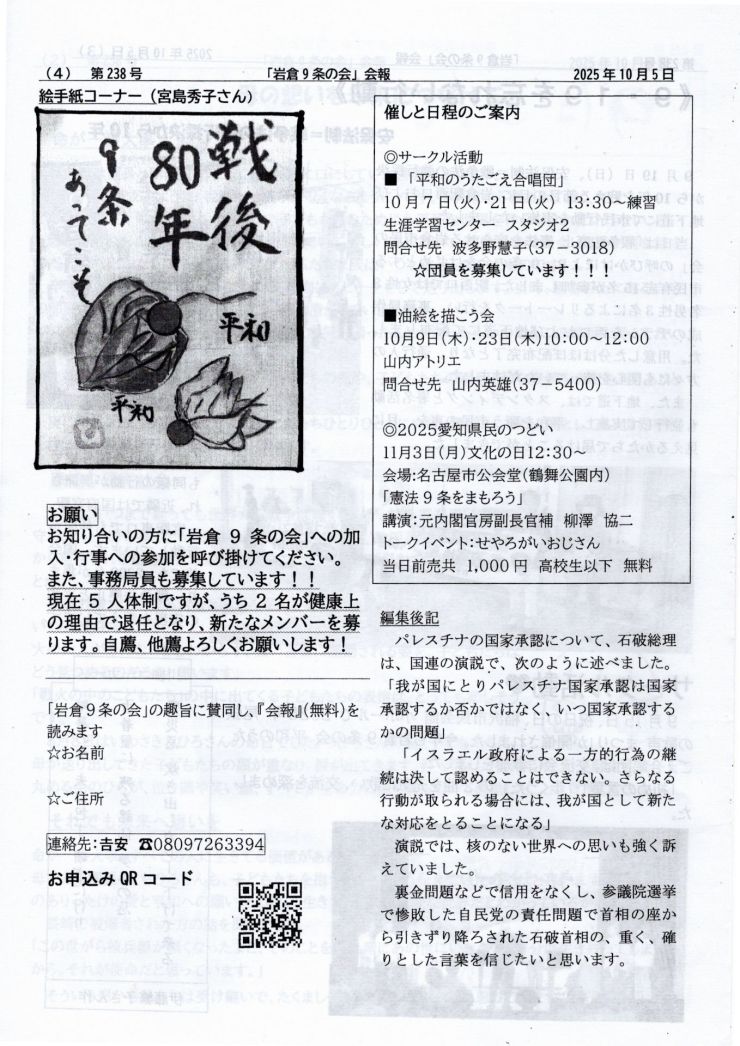 （4）　第238号　　「岩倉９条の会」会報　　2025年10月5日
絵手紙コーナー（宮島秀子さん）
戦後
80年
9条
あってこそ
平和
平和
お願い
お知り合いの方に「岩倉 9 条の会」への加
入・行事への参加を呼び掛けてください。
また、事務局員も募集しています！！
現在 5 人体制ですが、うち 2 名が健康上
の理由で退任となり、新たなメンバーを募
ります。自薦、他薦よろしくお願いします！
「岩倉９条の会」の趣旨に賛同し『会報』(無料)を
読みます
☆お名前
☆ご住所
連絡先：吉安　☎08097263394
お申込み QR コード
催しと日程のご案内
◎サークル活動
■「平和のうたごえ合唱団」
10月7日(火)・21日(火) 13:30～練習
生涯学習センター　スタジオ2
問合せ先　波多野慧子(37－3018)
☆団員を募集しています！！！
■油絵を描こう会
10月9日(木)・23日(木)10:00～12:00
山内アトリエ
問合せ先　山内英雄(37－5400)
◎2025愛知県民のつどい
11月3日(月)文化の日12:30～
会場:名古屋市公会堂(鶴舞公園内)
「憲法９条をまもろう」
講演：元内閣官房副長官補　柳澤　協二
トークイベント：せやろがいおじさん
当日前売共　1,000円　高校生以下　無料
編集後記
パレスチナの国家承認について、石破総理
は、国連の演説で、次のように述べました。
「我が国にとりパレスチナ国家承認は国家
承認するか否かではなく、いつ国家承認する
かの問題」
「イスラエル政府による一方的行為の継
続は決して認めることはできない。さらなる
行動が取られる場合には、我が国として新た
な対応をとることになる」
演説では、核のない世界への思いも強く訴
えていました。
裏金問題などで信用をなくし、参議院選挙
で惨敗した自民党の責任問題で首相の座か
ら引きずり降ろされた石破首相の、重く、確
りとした言葉を信じたいと思います。